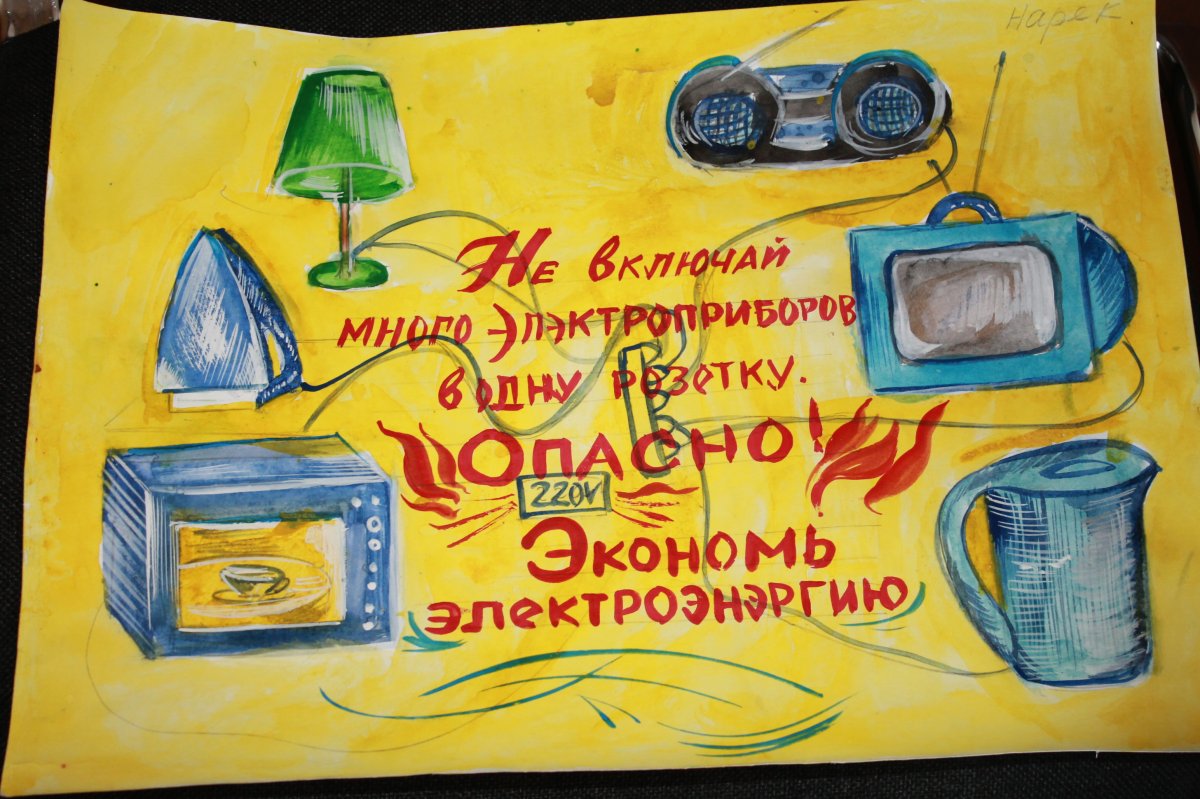 Нарек.
Не включай
много элэктроприборов
в одну розетку.
Опасно!
220V
Экономь
электроэнэргию